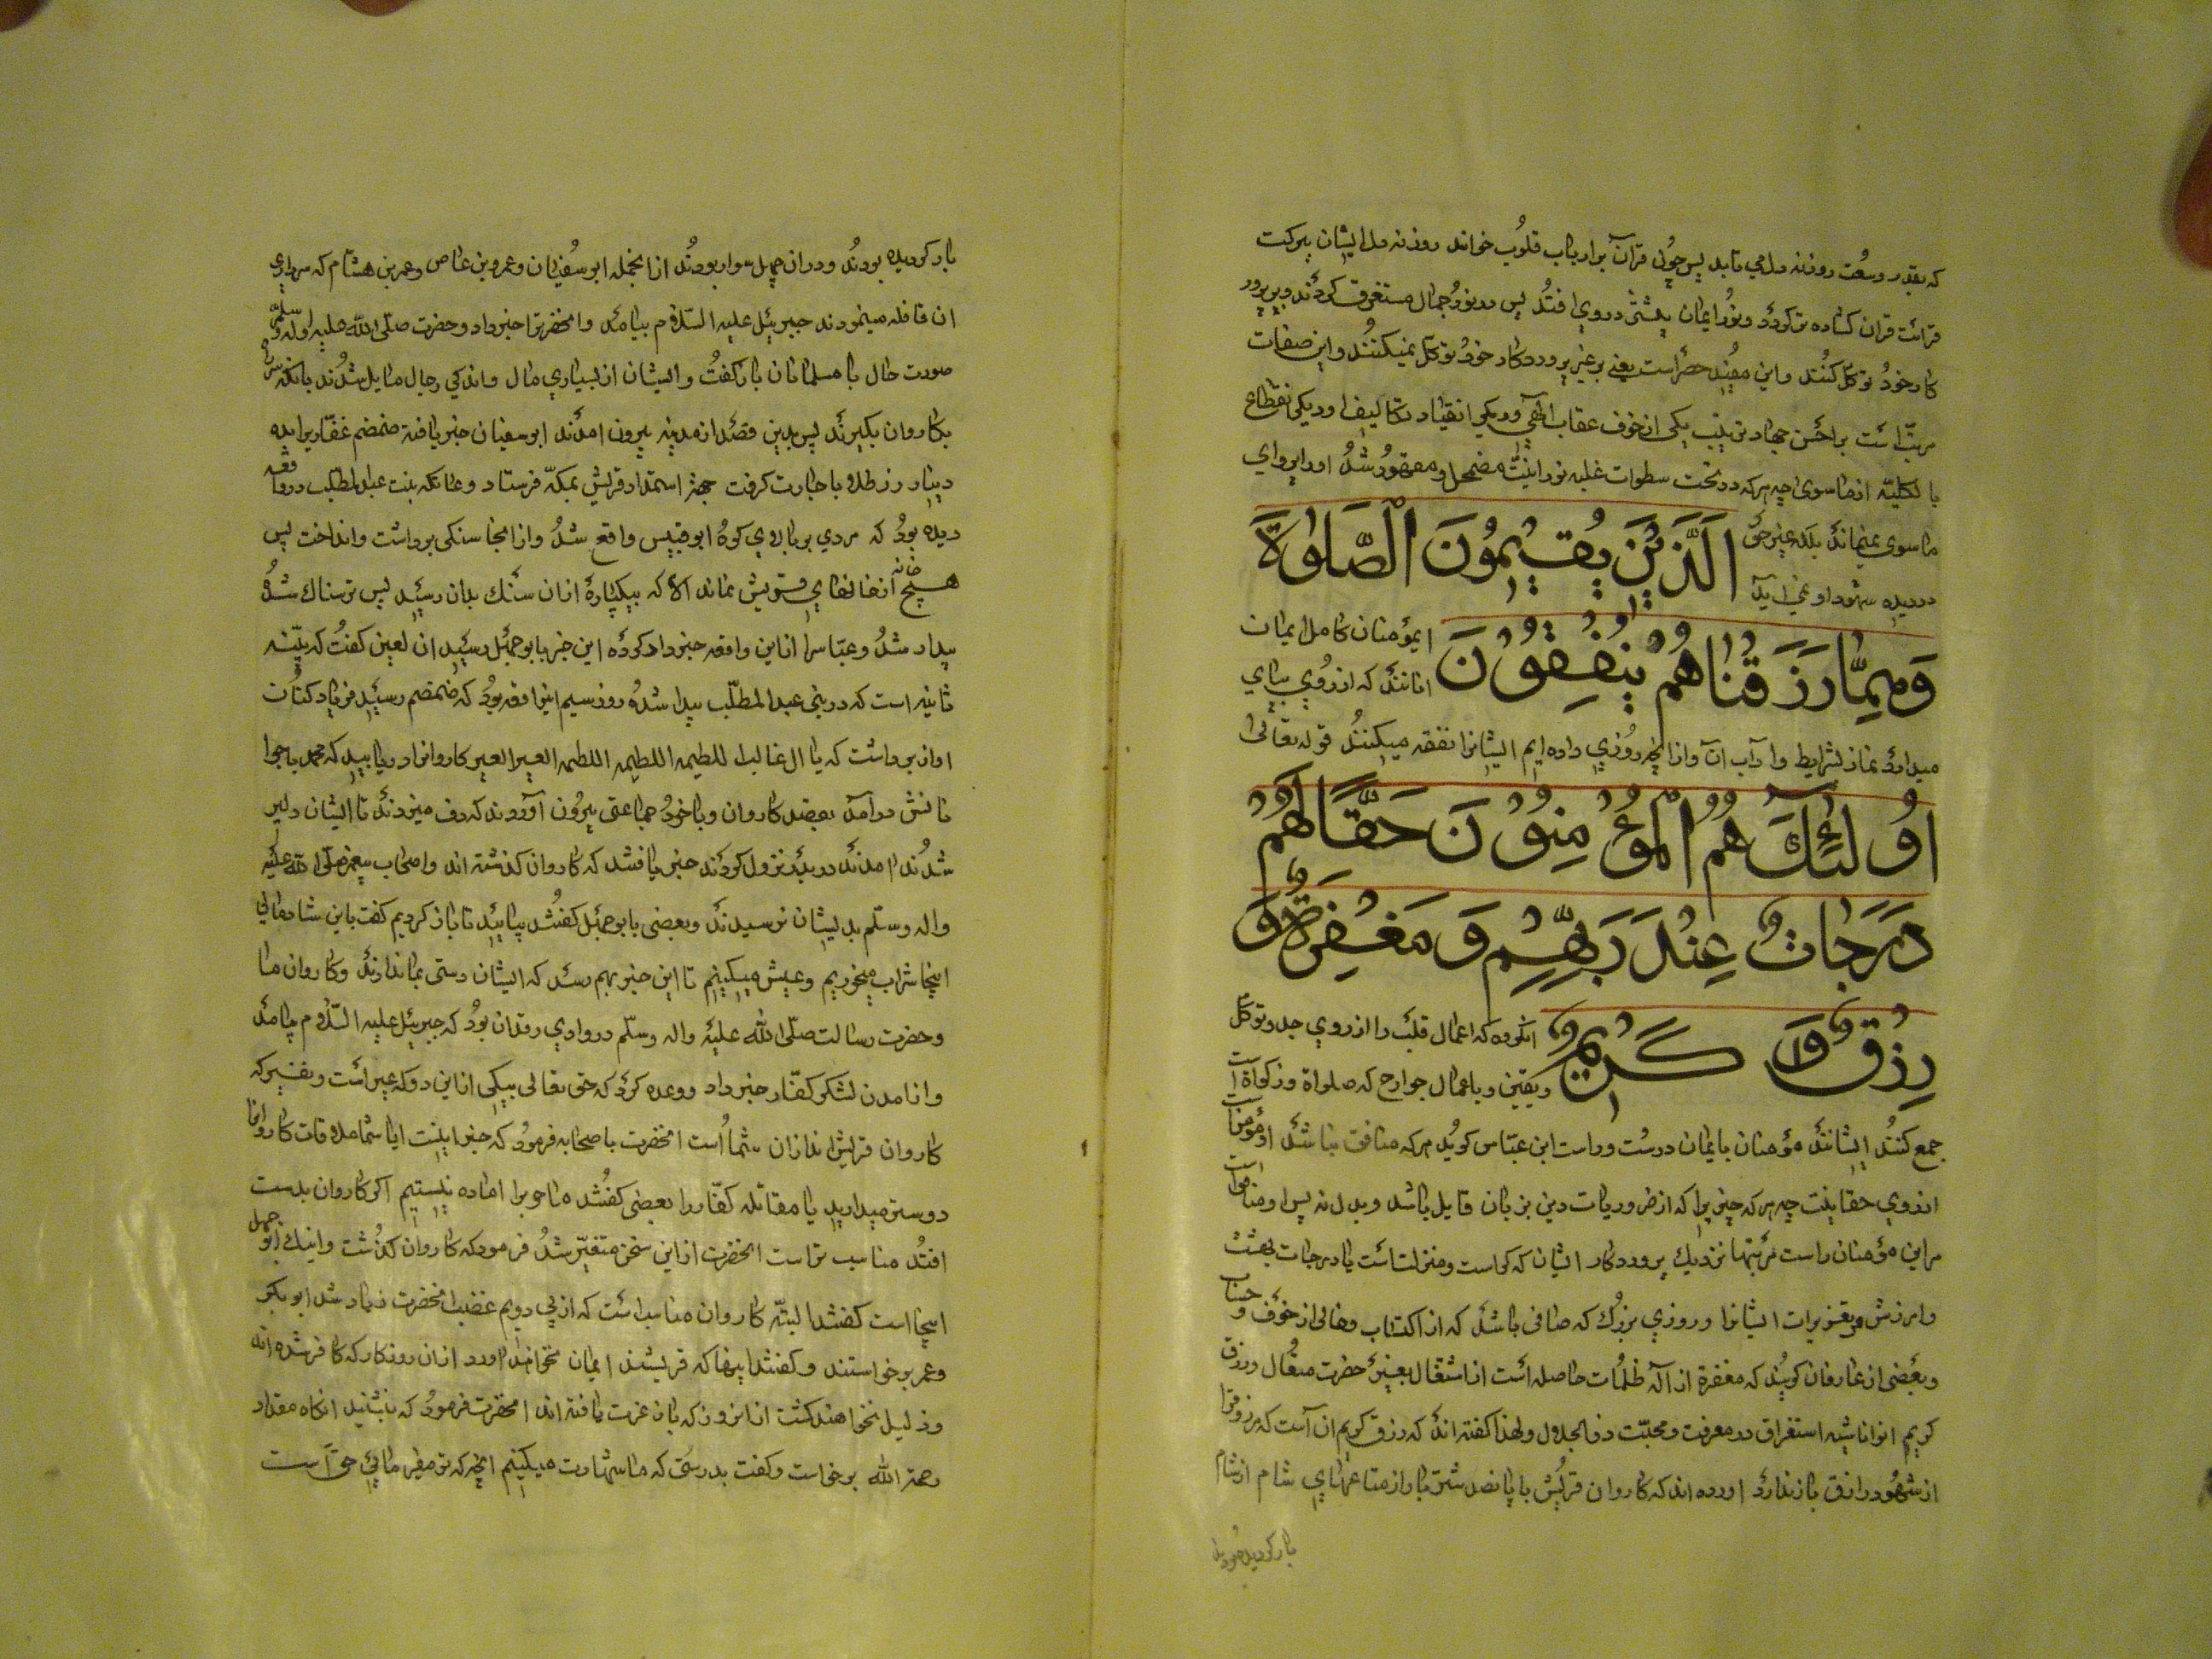 که بقدر وسعت روزنه دل می تابد پس چون قرآن بر ارباب قلوب خواند روزنه دل ایشان ببرکت
قرائت قران کشاده تر کردد ونور ایمان بیشتر دروی افتد پس در نور جمال مستغرق کردند وبر پرورد
کار خود توکل کنند واین مفید حصر است یعنی بر غیر پروردکار خود توکل نمیکنند واین صفات
مرتب است بر احسن جهاد ترتیب یکی از خوف عقاب الهی ودیکر انقیاد تکالیف او دیکر انقطاع
بالکلیه از ماسوی چه هرکه در تحت سطوات غلبه نورانیت مضمحل ومقهور شد او را پروای
ماسوی نمیماند بلکه غیر حق
در دیده شهود او نمی آید
الَّذِينَ يُقِيمُونَ الصَّلَوٰةَ
وَمِمَّا رَزَقْنَاهُمْ يُنْفِقُونَ
ایمؤمنان کامل ایمان
انانند که از روی بپای
میدارند نماز بشرایط وآداب آن واز انچه روزی داده ایم ایشانرا نفقه میکنند قوله تعالی
اُولٰئِكَ هُمُ الْمُؤْمِنُونَ حَقًّا لَهُمْ
دَرَجَاتٌ عِنْدَ رَبِّهِمْ وَمَغْفِرَةٌ وَ
رِزْقٌ كَرِيمٌ
انکروه که اعمال قلب را از روی جد وتوکل
ویقین وبا اعمال جوارح که صلواة وزکواة است
جمع کنند ایشانند مؤمنان بایمان درست وراست ابن عباس کوید هرکه منافق نباشد او مؤمن است
از روی حقانیت چه هرکه چیزیرا که از ضروریات دین بزبان قایل باشد وبدل نه پس او منافق است
مر این مؤمنان راست مرتبتها نزدیك پروردکار ایشان که کراست ومنزلتست یا درجات بهشت
وامرزش مر تقصیرات ایشانرا وروزی بزرك که صافی باشد که از اکتساب وخالی از خوف و حساب
وبعضی از عارفان کویند که مغفرة ازاله ظلمات حاصله است از اشتغال بغیر حضرت متعال ورزق
کریم انوار ناشیه استغراق در معرفت ومحبت ذو الجلال ولهذا کفته اند که رزق کریم ان آست که مرزوقرا
از شهود رازق باز ندارد اورده اند که کاروان قریش با پانصد شتر بار از متاعهای شام از شام
بار کردیده بودند
بار کردیده بودند ودران چهل سوار بودند ازانجمله ابو سفیان وعمرو بن عاص وعمر بن هشام که سرداری
ان قافله مینمودند جبرئیل علیه السلام بیامد وانحضرترا خبر داد وحضرت صلی الله علیه واله وسلم
صورت حال با مسلمانان باز کفت وایشان از بسیاری مال واندکی رجال مایل شدند بانکه سر راه
بکاروان بکیرند پس بدین قصد از مدینه بیرون امدند ابو سفیان خبر یافته ضمضم غفاریرا بده
دینار زر طلا باجارت کرفت جهة استمداد قریش بمکه فرستاد وعاتکه بنت عبد المطلب در واقعه
دیده بود که مردی بر بالای کوه ابو قبیس واقع شد واز انجا سنکی برداشت وانداخت پس
هیچ خانه از خانهای قریش نماند الا که بیکپاره ازان سنك بان رسید پس ترسناك شده
بیدار شد وعباسرا از این واقعه خبرداد کرده این خبر بابو جهل رسید ان لعین کفت که نبیه
ثانیه است که در بنی عبد المطلب پیدا شده روز سیم این واقعه بود که ضمضم رسید فریاد کنان
اواز برداشت که یا ال غالب اللطیمه اللطیمه اللطیمه العیر العیر کاروانرا دریابید که محمد باجوا
نانش درآمد بقصد کاروان وبا خود جماعتی بیرون آوردند که دف میزدند تا ایشان دلیر
شدند امدند در بدر نزول کردند خبر یافتند که کاروان کذشته اند واصحاب پیغمبر صلی الله علیه
واله وسلم بدیشان نرسیدند وبعضی بابو جهل کفتند بیائید تا باز کردیم کفت باین شادمانی
اینجا شراب میخوریم وعیش میکنیم تا این خبر بهم رسد که ایشان دستی بما ندارند وکاروان ما
وحضرت رسالت صلی الله علیه واله وسلم در وادی رقدان بود که جبرئیل علیه السلام بیامد
واز امدن لشکر کفار خبر داد ووعده کرد که حق تعالی بیکی از این دو که عیر است ونفیر که
کاروان قریش اند ازان شما است انحضرت باصحابه فرمود که خبر اینست ایا شما ملاقات کاروانرا
دوستر میدارید یا مقاتله کفار را بعضی کفتند ما حربرا اماده نیستیم اکر کاروان بدست
افتد مناسب تر است انحضرت از این سخن متغیر شد فرمود که کاروان کذشت واینك ابو جهل
اینجا است کفتند البته کاروان مناسب است که از پی رویم غضب انحضرت زیاد شد ابو بکر
وعمر برخواستند وکفتند اینها که قریشند ایمان نخواهند اورد ازان روزکار که کافر شده اند
وذلیل نخواهند کشت ازان روز که بان عزت یافته اند انحضرت فرمود که بنشنید انکاه مقداد
رحمة الله برخاست وکفت بدرستی که ما شهادت میکنیم انچه که تو میفرمائی حق است